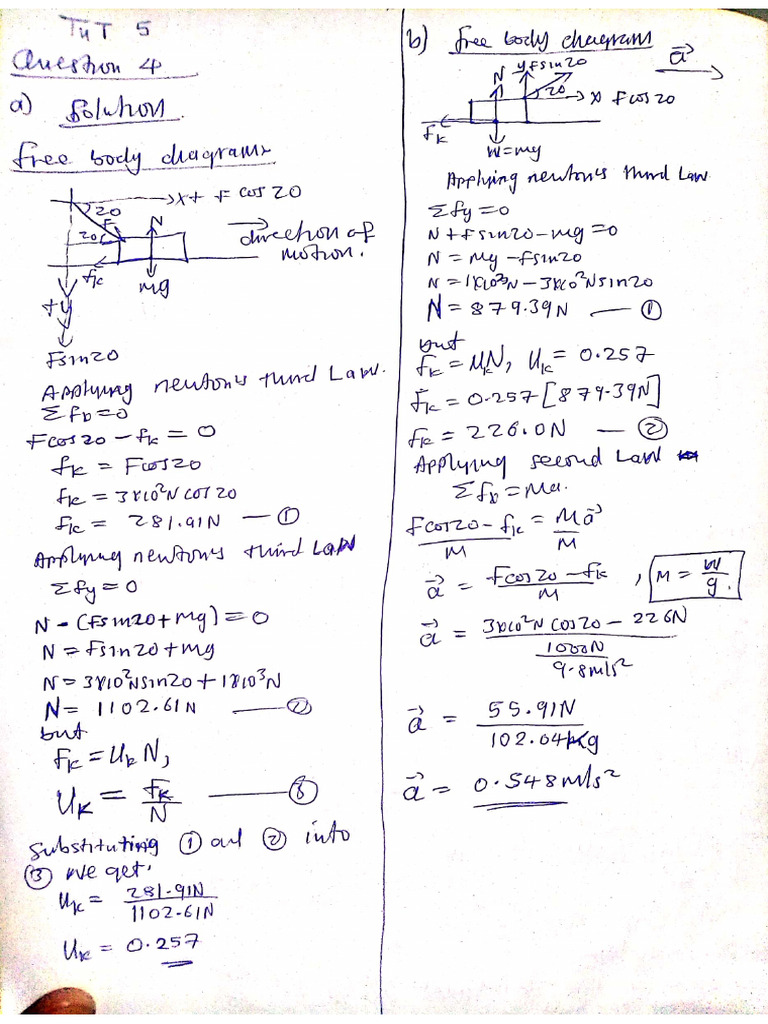 TUT 5
Question 4
a) Solution.
free body diagrams
x+ F cos 20
20
N
F
20
direction of motion.
fk
mg
+y
Fsin20
Applying newton's third Law.
Σfx=0
Fcos20 - fk = 0
fk = Fcos20
fk = 3x10²N cos 20
fk = 281.91N — ①
Applying newton's third Law
Σfy = 0
N - (Fsin20+mg) = 0
N = Fsin20+mg
N = 3x10²Nsin20 + 1x10³N
N = 1102.61N — ②
but
fk = UkN,
Uk = fk/N — ③
Substituting ① and ② into
③ we get.
Uk = 281.91N/1102.61N
Uk = 0.257
b) free body diagram
N
y Fsin20
a⃗
20
x F cos20
fk
W=mg
Applying newton's third Law.
Σfy = 0
N + Fsin20 - mg = 0
N = mg - Fsin20
N = 1x10³N - 3x10²Nsin20
N = 879.39N — ①
but
fk = UkN, Uk = 0.257
fk = 0.257[879.39N]
fk = 226.0N — ②
Applying second Law
Σfx = Ma.
Fcos20 - fk/M = Ma⃗/M
a⃗ = Fcos20 - fk/M , M = W/g.
a⃗ = 3x10²N cos20 - 226N/1000N/9.8m/s²
a⃗ = 55.91N/102.04kg
a⃗ = 0.548m/s²